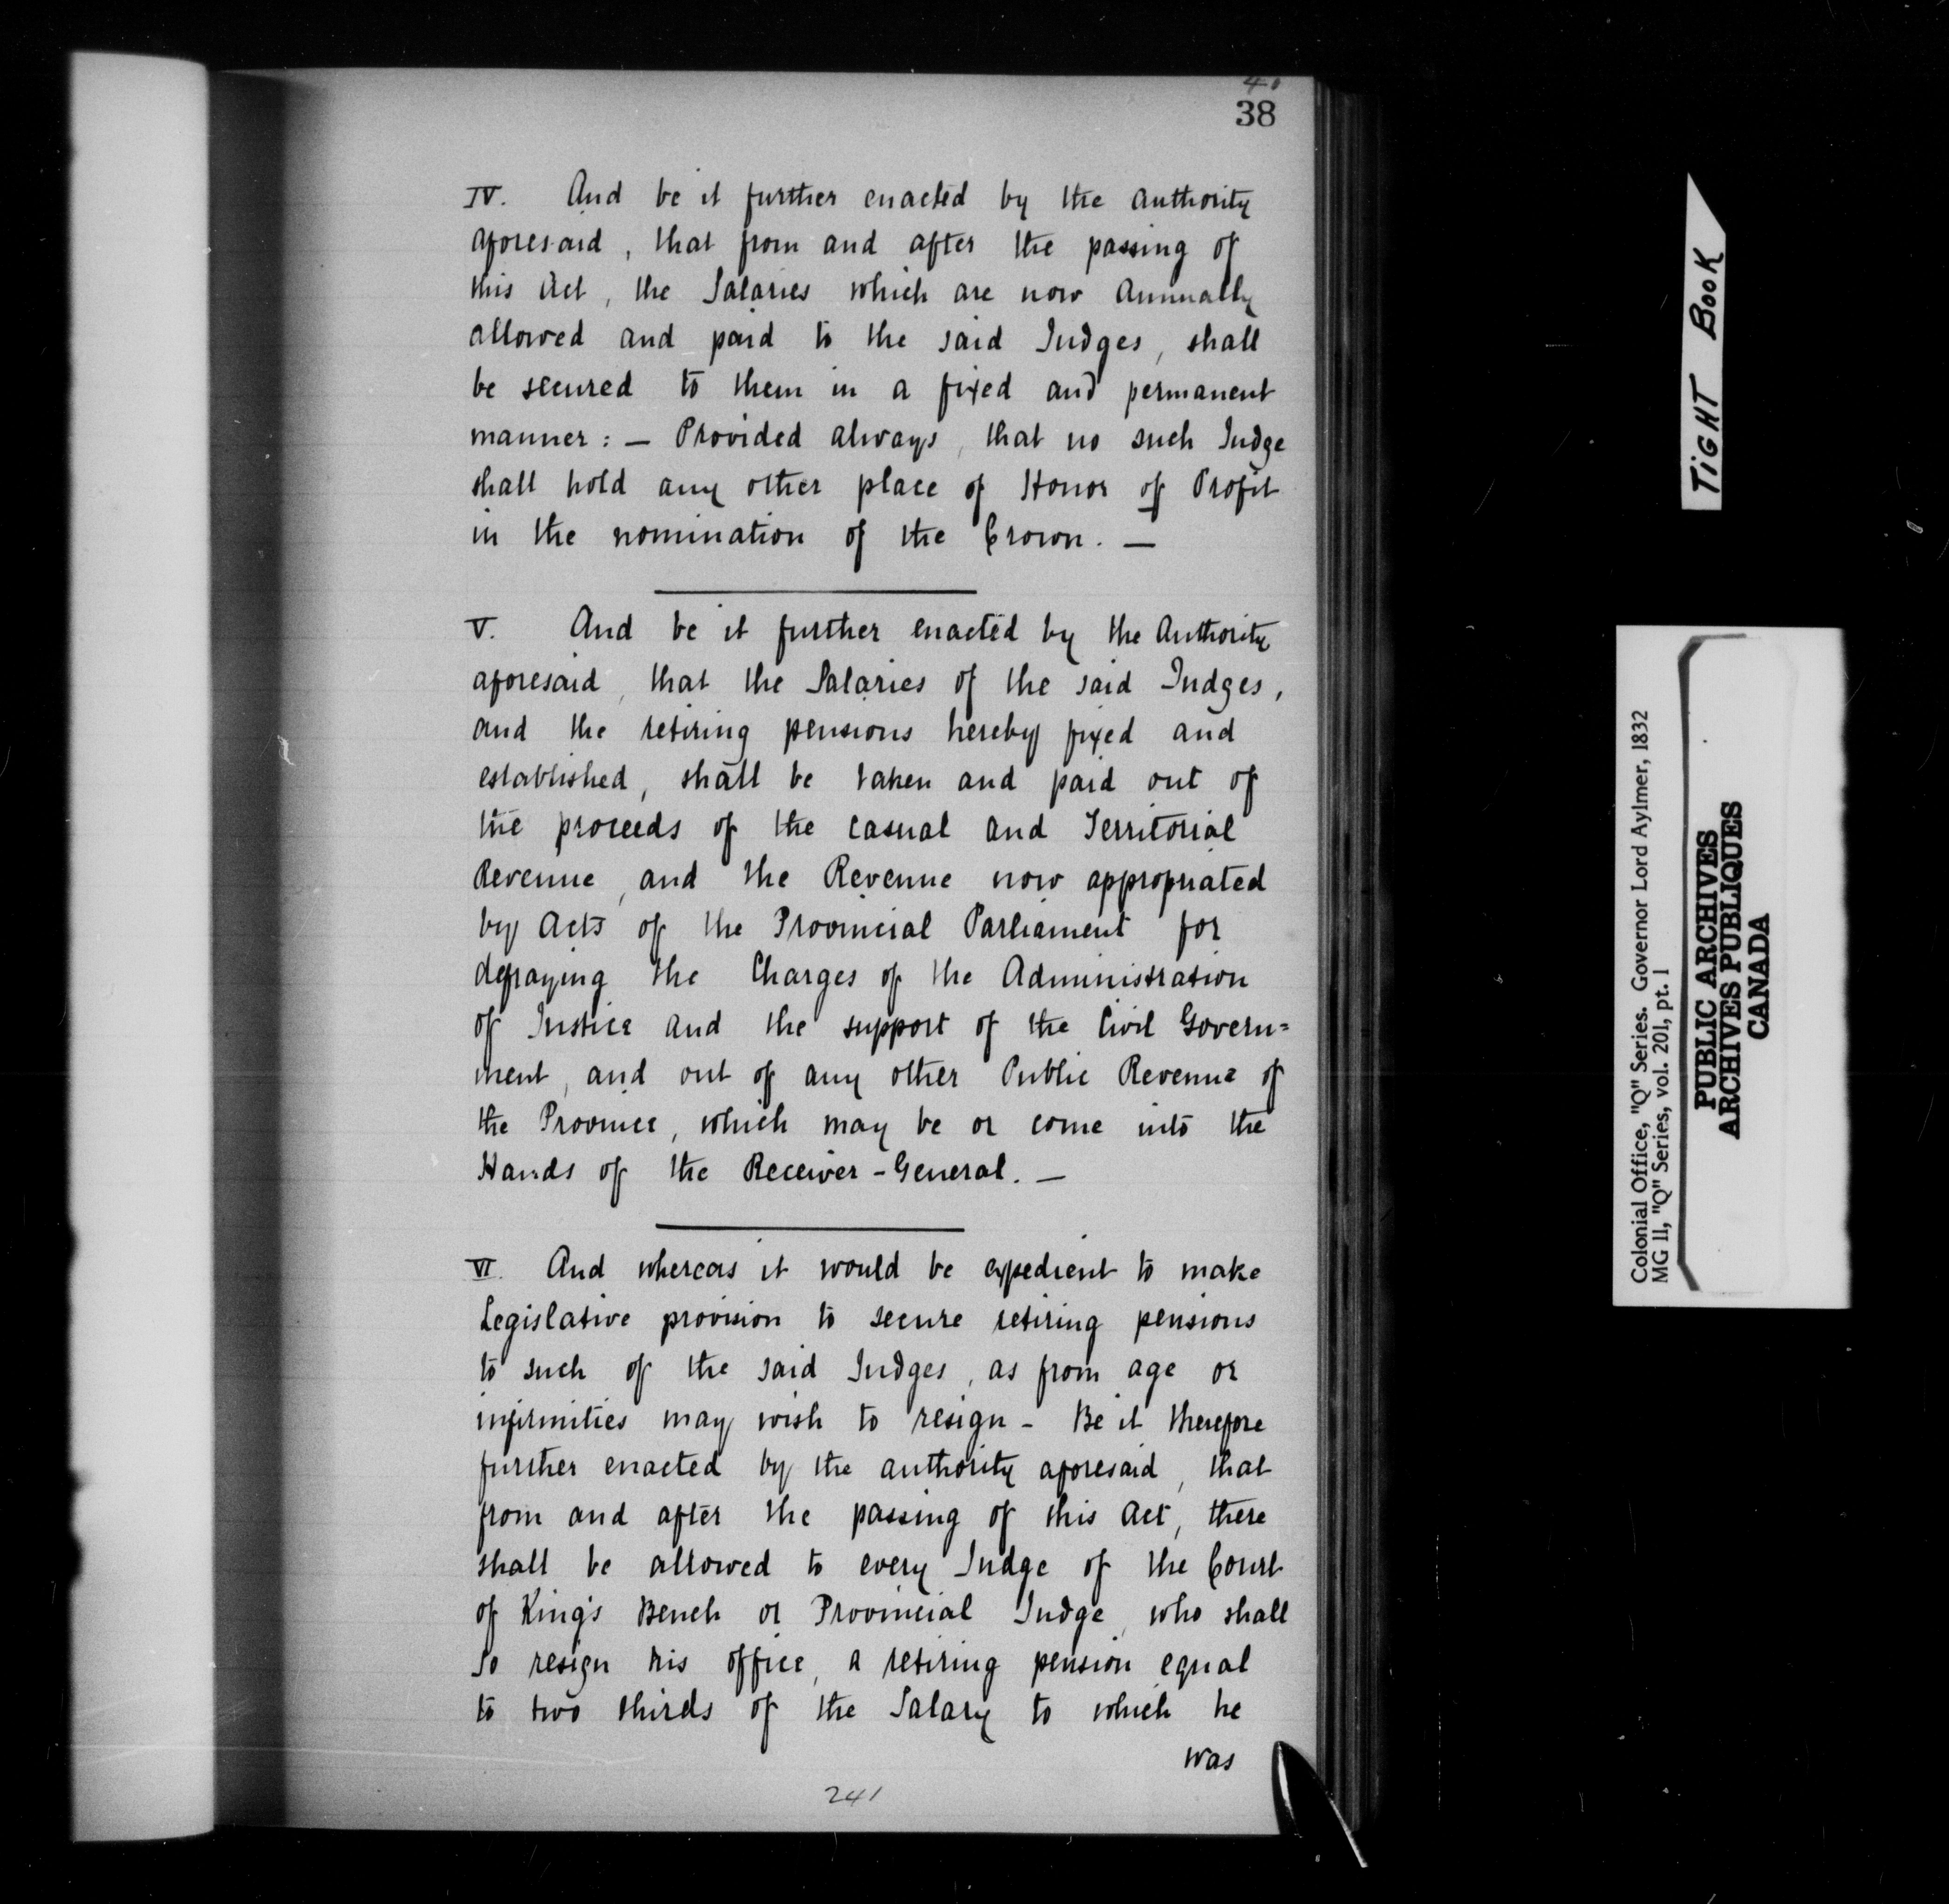 40
38
IV. And be it further enacted by the authority
aforesaid, that from and after the passing of
this Act, the Salaries which are now annually
allowed and paid to the said Judges, shall
be secured to them in a fixed and permanent
manner: — Provided always, that no such Judge
shall hold any other place of Honor of Profit
in the nomination of the Crown. —
V. And be it further enacted by the Authority
aforesaid, that the Salaries of the said Judges,
and the retiring pensions hereby fixed and
established, shall be taken and paid out of
the proceeds of the casual and Territorial
Revenue, and the Revenue now appropriated
by Acts of the Provincial Parliament for
defraying the Charges of the Administration
of Justice and the support of the Civil Govern=
ment, and out of any other Public Revenue of
the Province, which may be or come into the
Hands of the Receiver-General. —
VI. And whereas it would be expedient to make
Legislative provision to secure retiring pensions
to such of the said Judges, as from age or
infirmities may wish to resign - Be it therefore
further enacted by the authority aforesaid, that
from and after the passing of this Act, there
shall be allowed to every Judge of the Court
of King's Bench or Provincial Judge, who shall
so resign his office, a retiring pension equal
to two thirds of the Salary to which he
was
241
TIGHT BOOK
Colonial Office, "Q" Series. Governor Lord Aylmer, 1832
MG 11, "Q" Series, vol. 201, pt. 1
PUBLIC ARCHIVES
ARCHIVES PUBLIQUES
CANADA